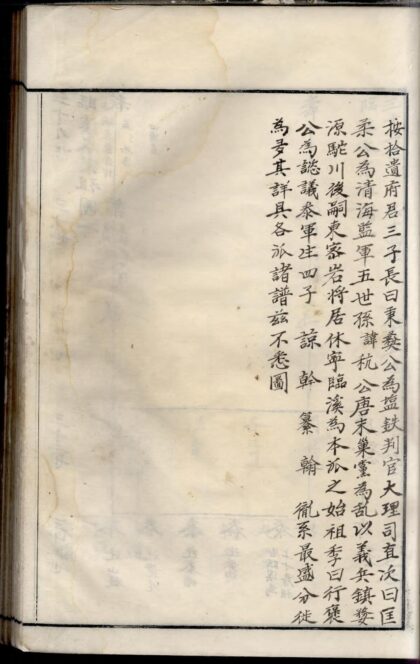 按拾遺府君三子長曰東彜公為塩鉄判官大理司直次曰匡
柔公為清海監軍五世孫諱杭公唐末巢黨為乱以義兵鎮婺
源駝川後嗣東家岩将居休寧臨溪為本派之始祖季曰行褒
公為諮議叅軍生四子 諒 幹 纂 翰 胤系最盛分徙
為多其詳具各派諸譜兹不悉圖